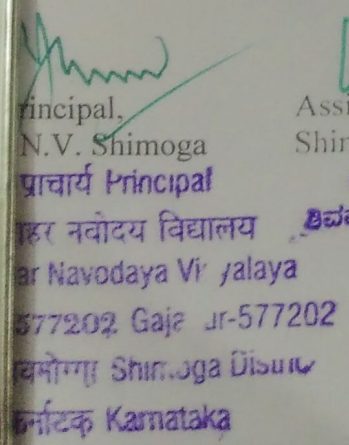 rincipal,
N.V. Shimoga
Assi
Shir
प्राचार्य Principal
हर नवोदय विद्यालय
ar Navodaya Vi yalaya
577202 Gaja ur-577202
वमोग्गा Shimoga
र्नाटक Karnataka